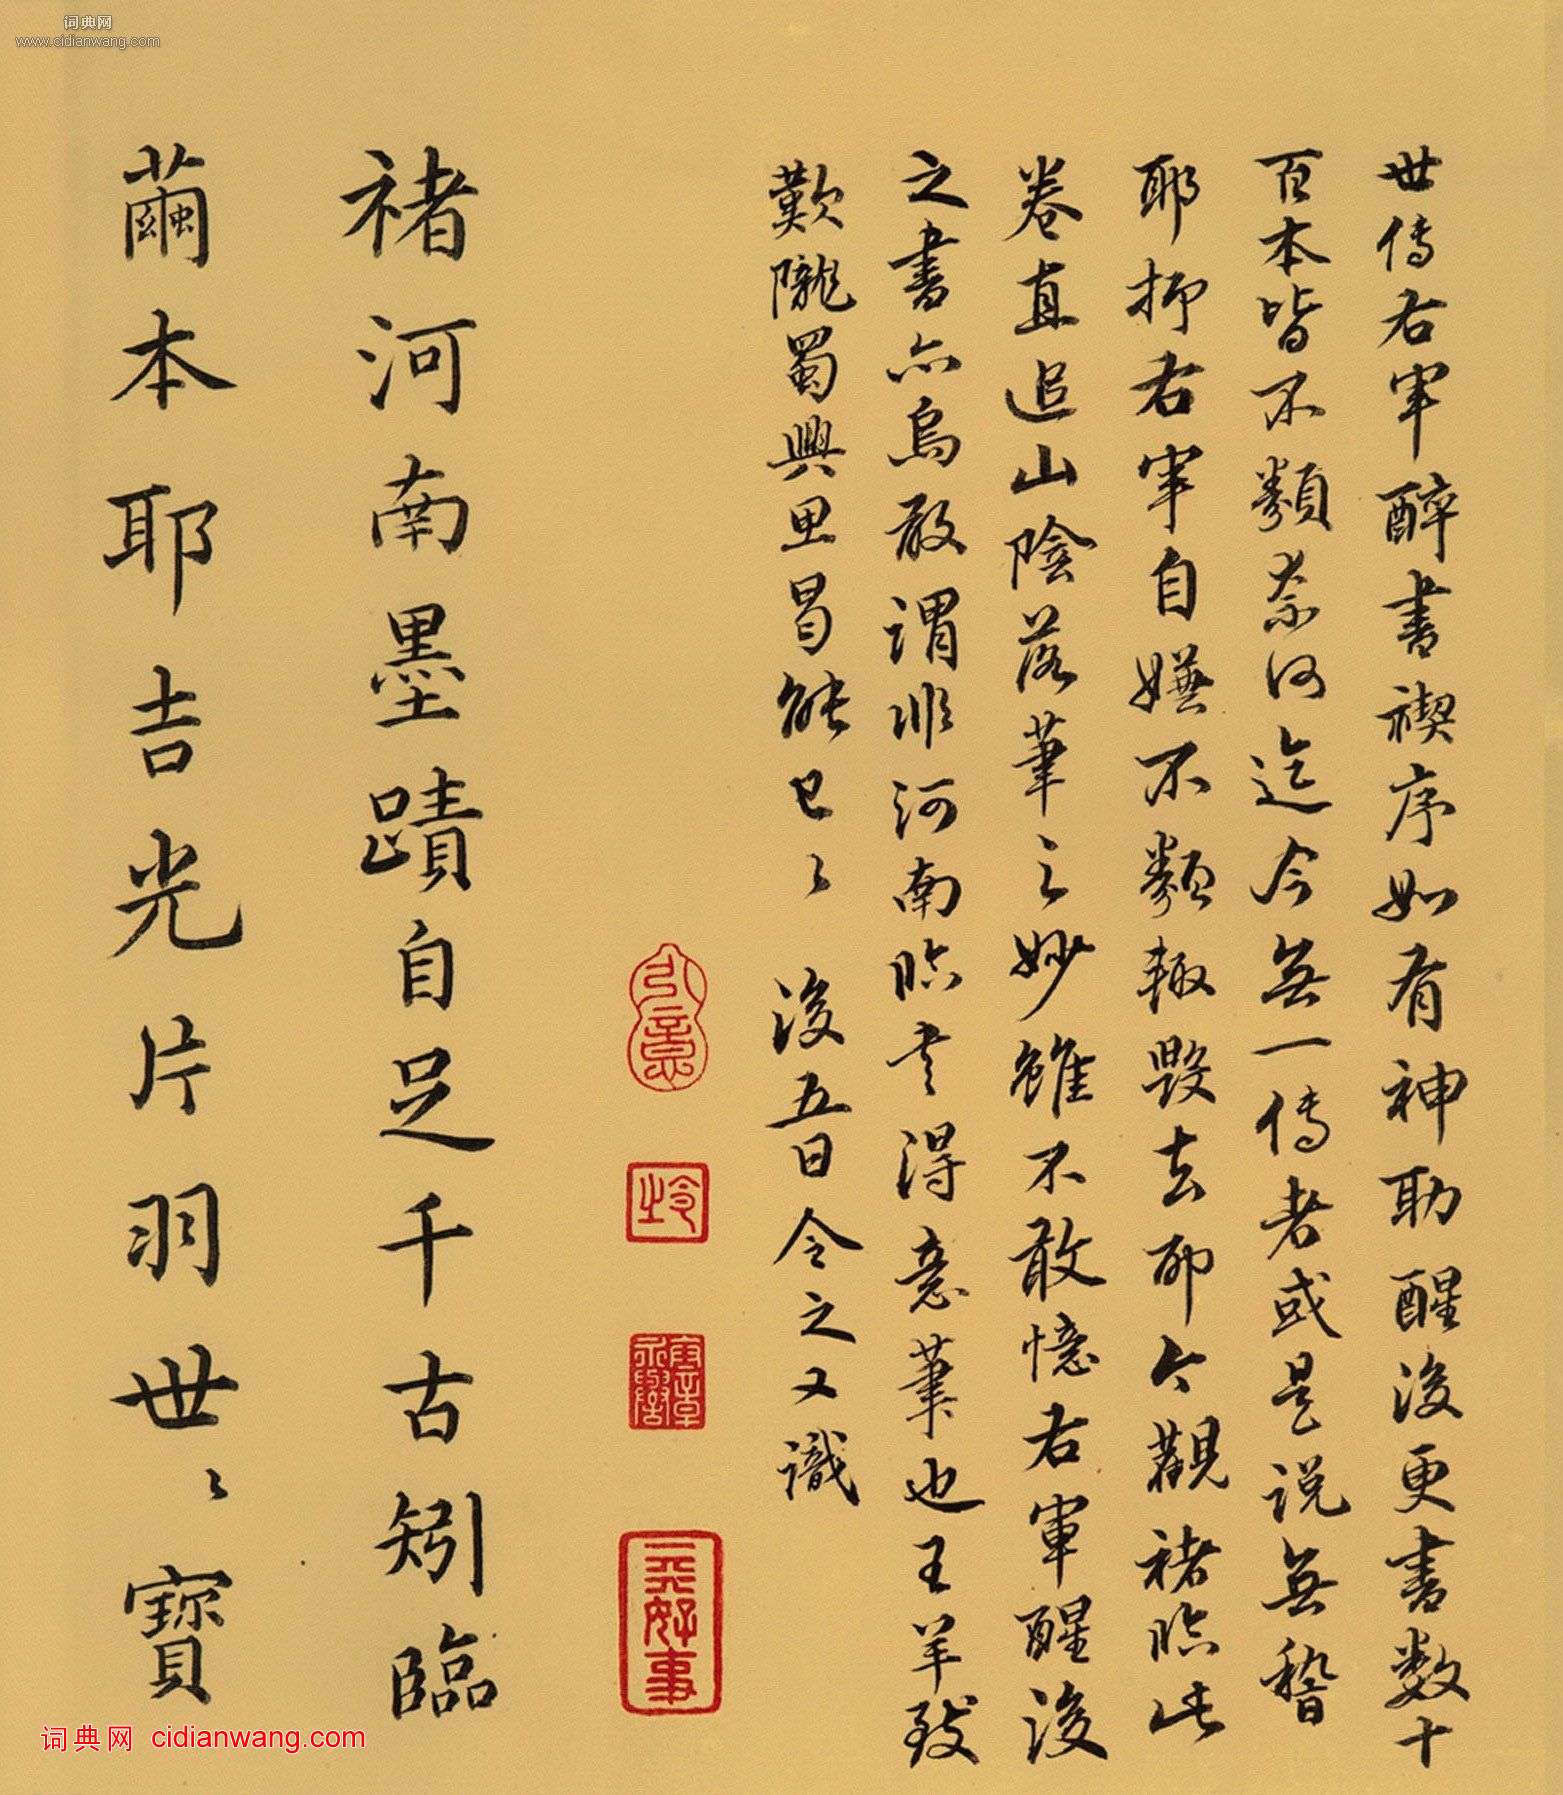 词典网
www.cidianwang.com
世傳右军醉書禊序如有神助醒後更書數十
百本皆不類奈何迄今無一傳者或是说無稽
耶抑右军自嫌不類輙毀去耶今觀褚临此
卷直追山陰落筆之妙雖不敢憶右軍醒後
之書亦烏敢謂非河南临書得意筆也王羊致
歎隴蜀興思曷能已〻後五日令之又識
褚河南墨蹟自足千古矧臨
繭本耶吉光片羽世〻寶
心意
真好事
词典网 cidianwang.com